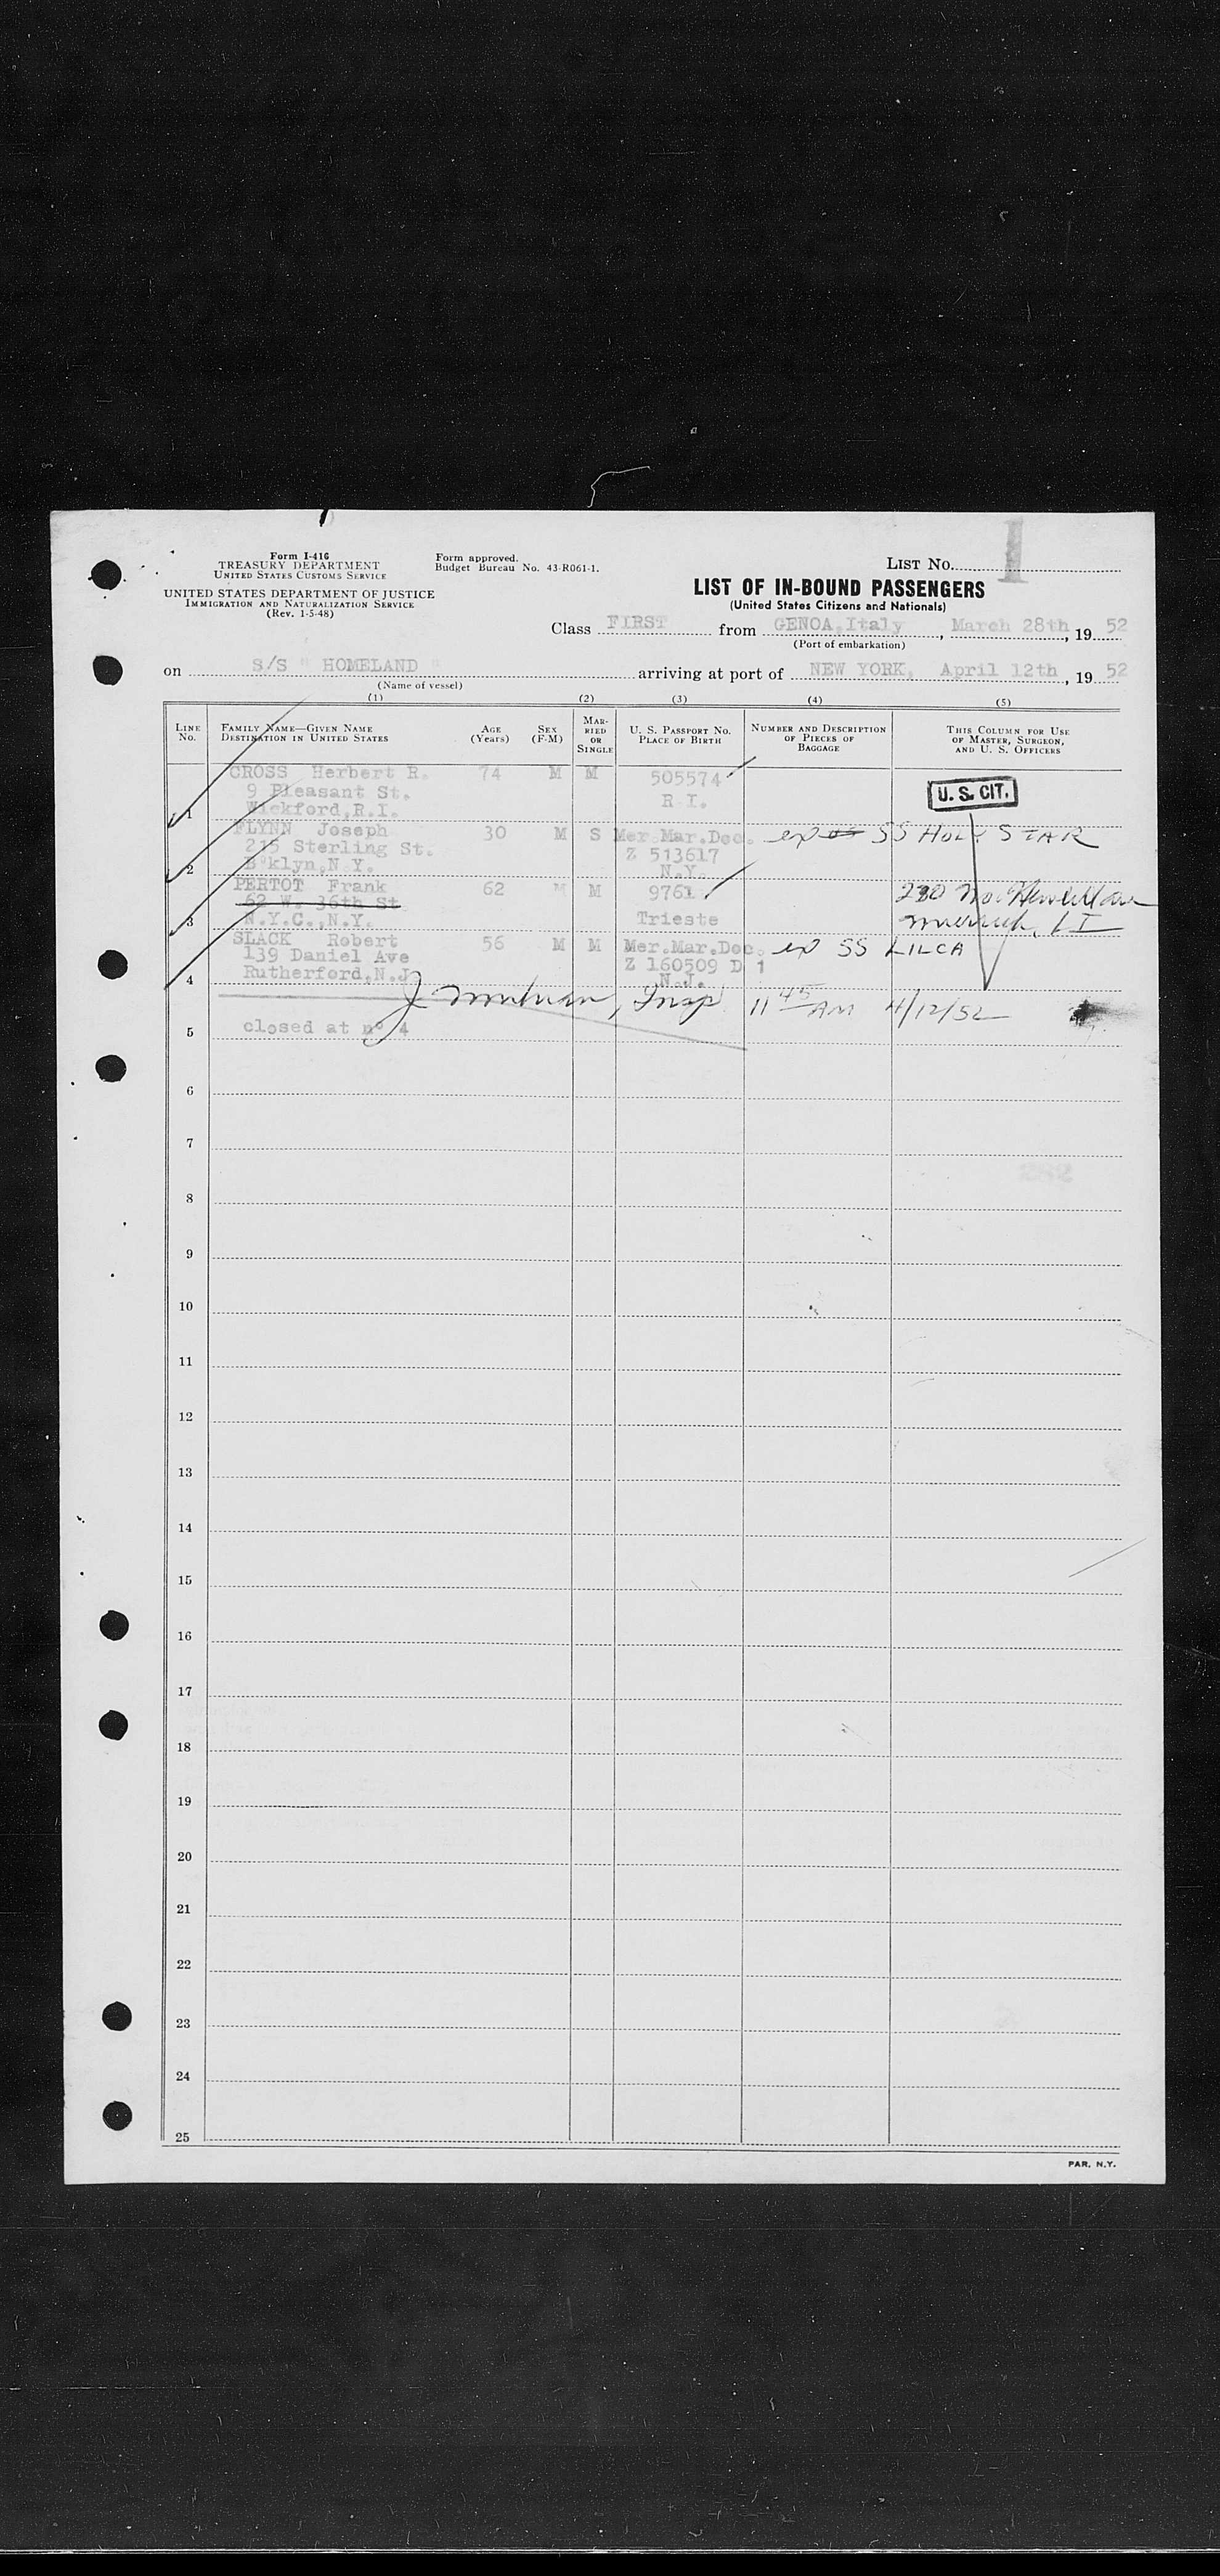 Form I-416
TREASURY DEPARTMENT
UNITED STATES CUSTOMS SERVICE
UNITED STATES DEPARTMENT OF JUSTICE
IMMIGRATION AND NATURALIZATION SERVICE
(Rev. 1-5-48)
Form approved.
Budget Bureau No. 43-R061-1.
LIST No. 1
LIST OF IN-BOUND PASSENGERS
(United States Citizens and Nationals)
Class FIRST from GENOA, Italy, March 28th, 19 52
(Port of embarkation)
on S/S " HOMELAND " arriving at port of NEW YORK, April 12th, 19 52
(Name of vessel)
(1) (2) (3) (4) (5)
LINE No.
FAMILY NAME—GIVEN NAME
DESTINATION IN UNITED STATES
AGE (Years)
SEX (F-M)
MARRIED OR SINGLE
U. S. PASSPORT No.
PLACE OF BIRTH
NUMBER AND DESCRIPTION OF PIECES OF BAGGAGE
THIS COLUMN FOR USE OF MASTER, SURGEON, AND U. S. OFFICERS
CROSS Herbert R. 74 M M 505574
9 Pleasant St. R.I. U. S. CIT.
1 Wickford, R.I.
FLYNN Joseph 30 M S Mer.Mar.Doc. ex SS HOLY STAR
215 Sterling St. Z 513617
2 B'klyn, N.Y. N.Y.
PERTOT Frank 62 M M 9761 230 No.
62 W. 36th St
3 N.Y.C., N.Y. Trieste Merrick, LI
SLACK Robert 56 M M Mer.Mar.Doc. ex SS LILCA
139 Daniel Ave Z 160509 D 1
4 Rutherford, N.J. N.J.
J. , Insp 11 45 AM 4/12/52
5 closed at n° 4
6
7
8
9
10
11
12
13
14
15
16
17
18
19
20
21
22
23
24
25
PAR. N.Y.